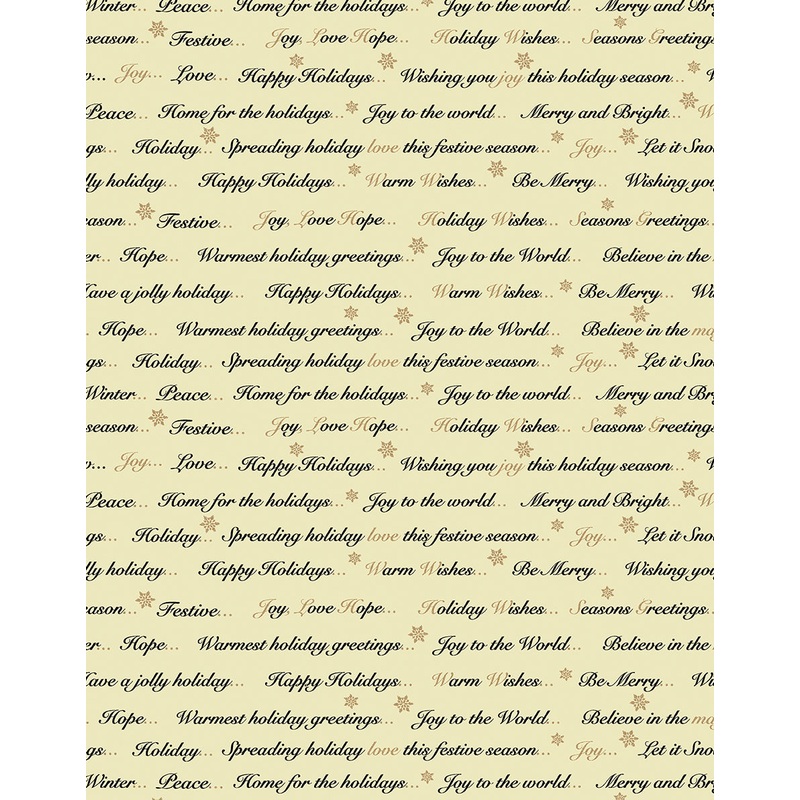 Winter... Peace... Home for the holidays... Joy to the world... Merry and Br
season... Festive... Joy, Love Hope... Holiday Wishes... Seasons Greeting
... Joy... Love... Happy Holidays... Wishing you joy this holiday season... W
Peace... Home for the holidays... Joy to the world... Merry and Bright... W
gs... Holiday... Spreading holiday love this festive season... Joy... Let it Sno
lly holiday... Happy Holidays... Warm Wishes... Be Merry... Wishing you
eason... Festive... Joy, Love Hope... Holiday Wishes... Seasons Greetings...
er... Hope... Warmest holiday greetings... Joy to the World... Believe in the
Have a jolly holiday... Happy Holidays... Warm Wishes... Be Merry... Wi
. Hope... Warmest holiday greetings... Joy to the World... Believe in the ma
gs... Holiday... Spreading holiday love this festive season... Joy... Let it Sno
Winter... Peace... Home for the holidays... Joy to the world... Merry and Bri
season... Festive... Joy, Love Hope... Holiday Wishes... Seasons Greeting
... Joy... Love... Happy Holidays... Wishing you joy this holiday season... W
Peace... Home for the holidays... Joy to the world... Merry and Bright... W
gs... Holiday... Spreading holiday love this festive season... Joy... Let it Sno
lly holiday... Happy Holidays... Warm Wishes... Be Merry... Wishing you
eason... Festive... Joy, Love Hope... Holiday Wishes... Seasons Greetings...
er... Hope... Warmest holiday greetings... Joy to the World... Believe in the
Have a jolly holiday... Happy Holidays... Warm Wishes... Be Merry... Wi
. Hope... Warmest holiday greetings... Joy to the World... Believe in the ma
gs... Holiday... Spreading holiday love this festive season... Joy... Let it Sno
Winter... Peace... Home for the holidays... Joy to the world... Merry and Bri